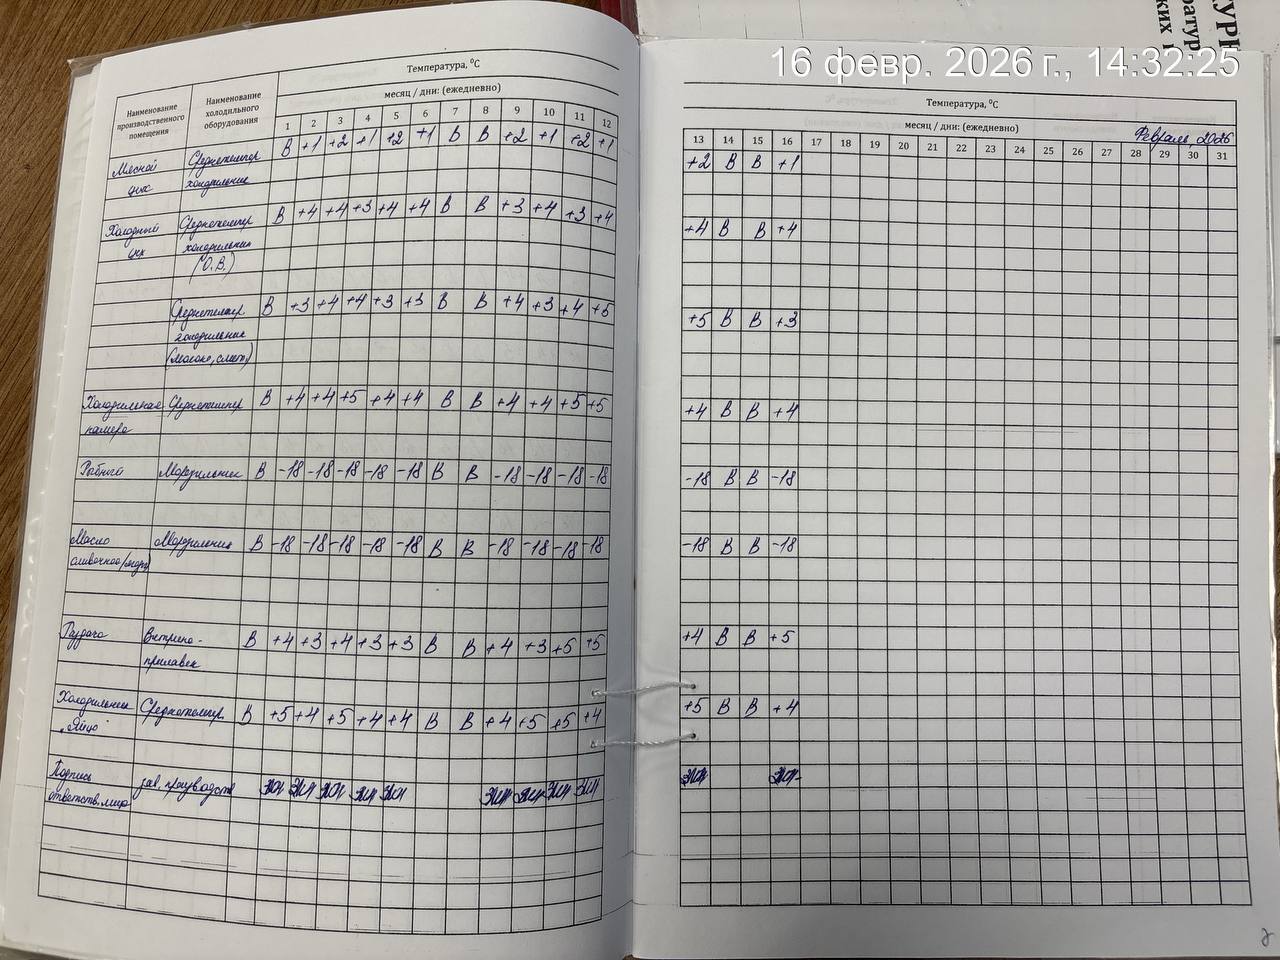 16 февр. 2026 г., 14:32:25
Наименование производственного помещения
Наименование холодильного оборудования
Температура, ⁰С
месяц / дни: (ежедневно)
1 2 3 4 5 6 7 8 9 10 11 12
Мясной Среднетемпер В +1 +2 +1 +2 +1 В В +2 +1 +2 +1
цех холодильник
Холодный Среднетемпер В +4 +4 +3 +4 +4 В В +3 +4 +3 +4
цех холодильник
(О.В.)
Среднетемпер В +3 +4 +4 +3 +3 В В +4 +3 +4 +5
холодильник
(молоко, смет.)
Холодильная Среднетемпер В +4 +4 +5 +4 +4 В В +4 +4 +5 +5
камера
Рыбный Морозильник В -18 -18 -18 -18 -18 В В -18 -18 -18 -18
Масло Морозильник В -18 -18 -18 -18 -18 В В -18 -18 -18 -18
сливочное
Раздача Витрина- В +4 +3 +4 +3 +3 В В +4 +3 +5 +5
прилавок
Холодильник Среднетемпер. В +5 +4 +5 +4 +4 В В +4 +5 +5 +4
"Яйцо"
Подпись зав. производств
ответств. лица
Температура, ⁰С
месяц / дни: (ежедневно)
Февраль, 2026
13 14 15 16 17 18 19 20 21 22 23 24 25 26 27 28 29 30 31
+2 В В +1
+4 В В +4
+5 В В +3
+4 В В +4
-18 В В -18
-18 В В -18
+4 В В +5
+5 В В +4